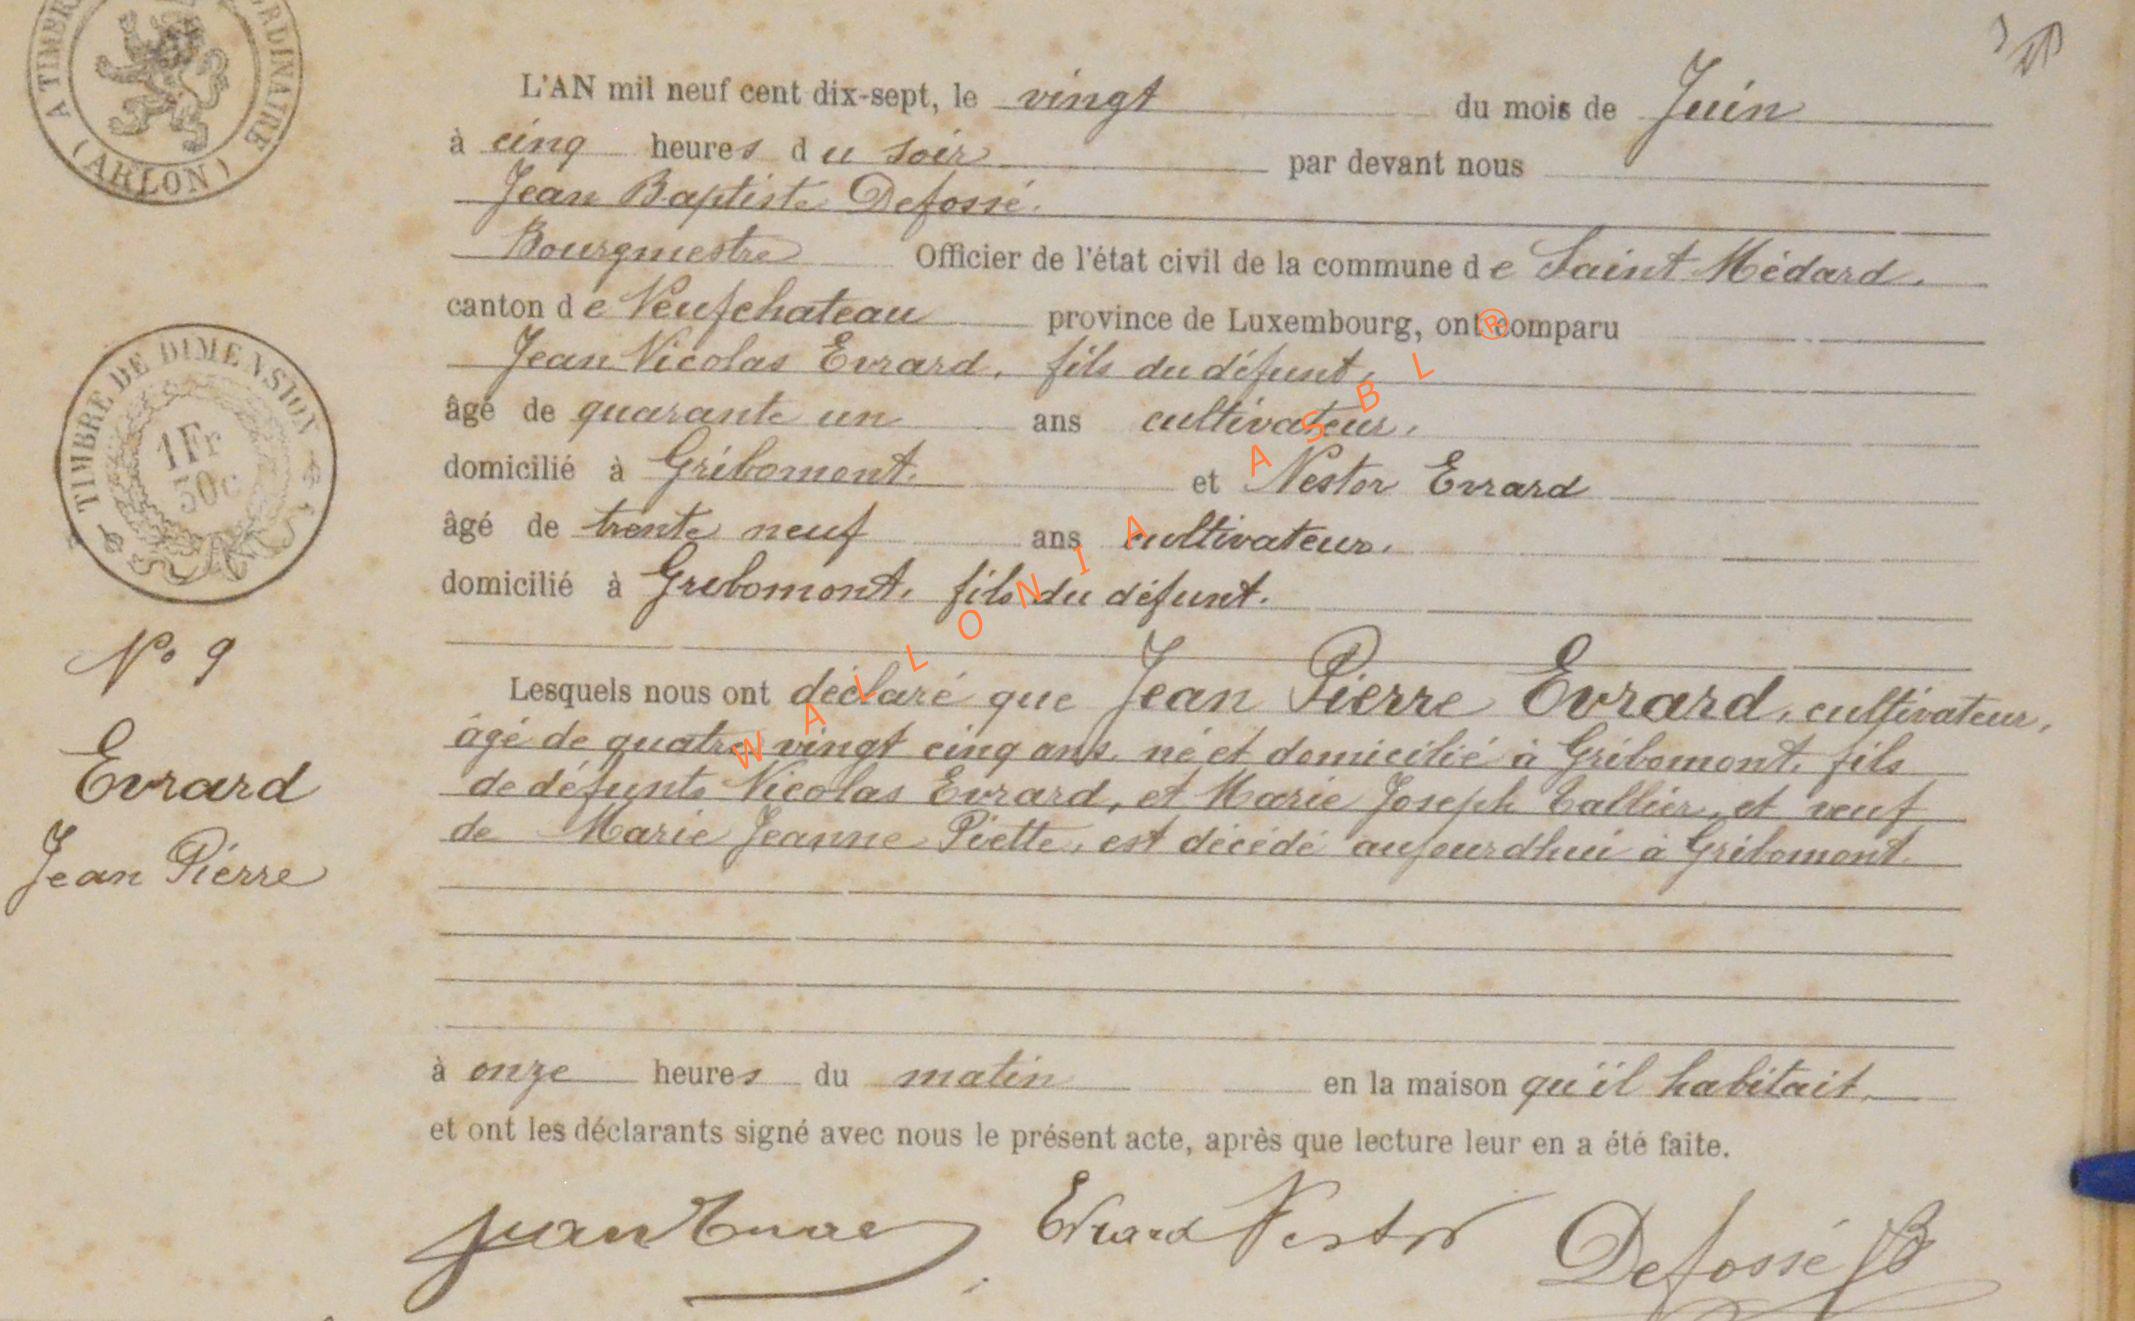 A TIMBRE ORDINAIRE
(ARLON)
L'AN mil neuf cent dix-sept, le vingt du mois de Juin
à cinq heures du soir par devant nous
Jean Baptiste Defossé.
Bourgmestre Officier de l'état civil de la commune de Saint Médard.
canton de Neufchateau province de Luxembourg, ont comparu
Jean Nicolas Evrard, fils du défunt,
âgé de quarante un ans cultivateur,
domicilié à Gribomont. et Nestor Evrard
âgé de trente neuf ans cultivateur.
domicilié à Gribomont, fils du défunt.
TIMBRE DE DIMENSION
1Fr
50c
No 9
Evrard
Jean Pierre
Lesquels nous ont déclaré que Jean Pierre Evrard, cultivateur,
âgé de quatre vingt cinq ans, né et domicilié à Gribomont, fils
de défunts Nicolas Evrard, et Marie Joseph Tallier, et veuf
de Marie Jeanne Piette, est décédé aujourdhui à Gribomont
à onze heures du matin en la maison qu'il habitait.
et ont les déclarants signé avec nous le présent acte, après que lecture leur en a été faite.
Evrard Nestor
Defossé JB
WALLONIA ASBL ®